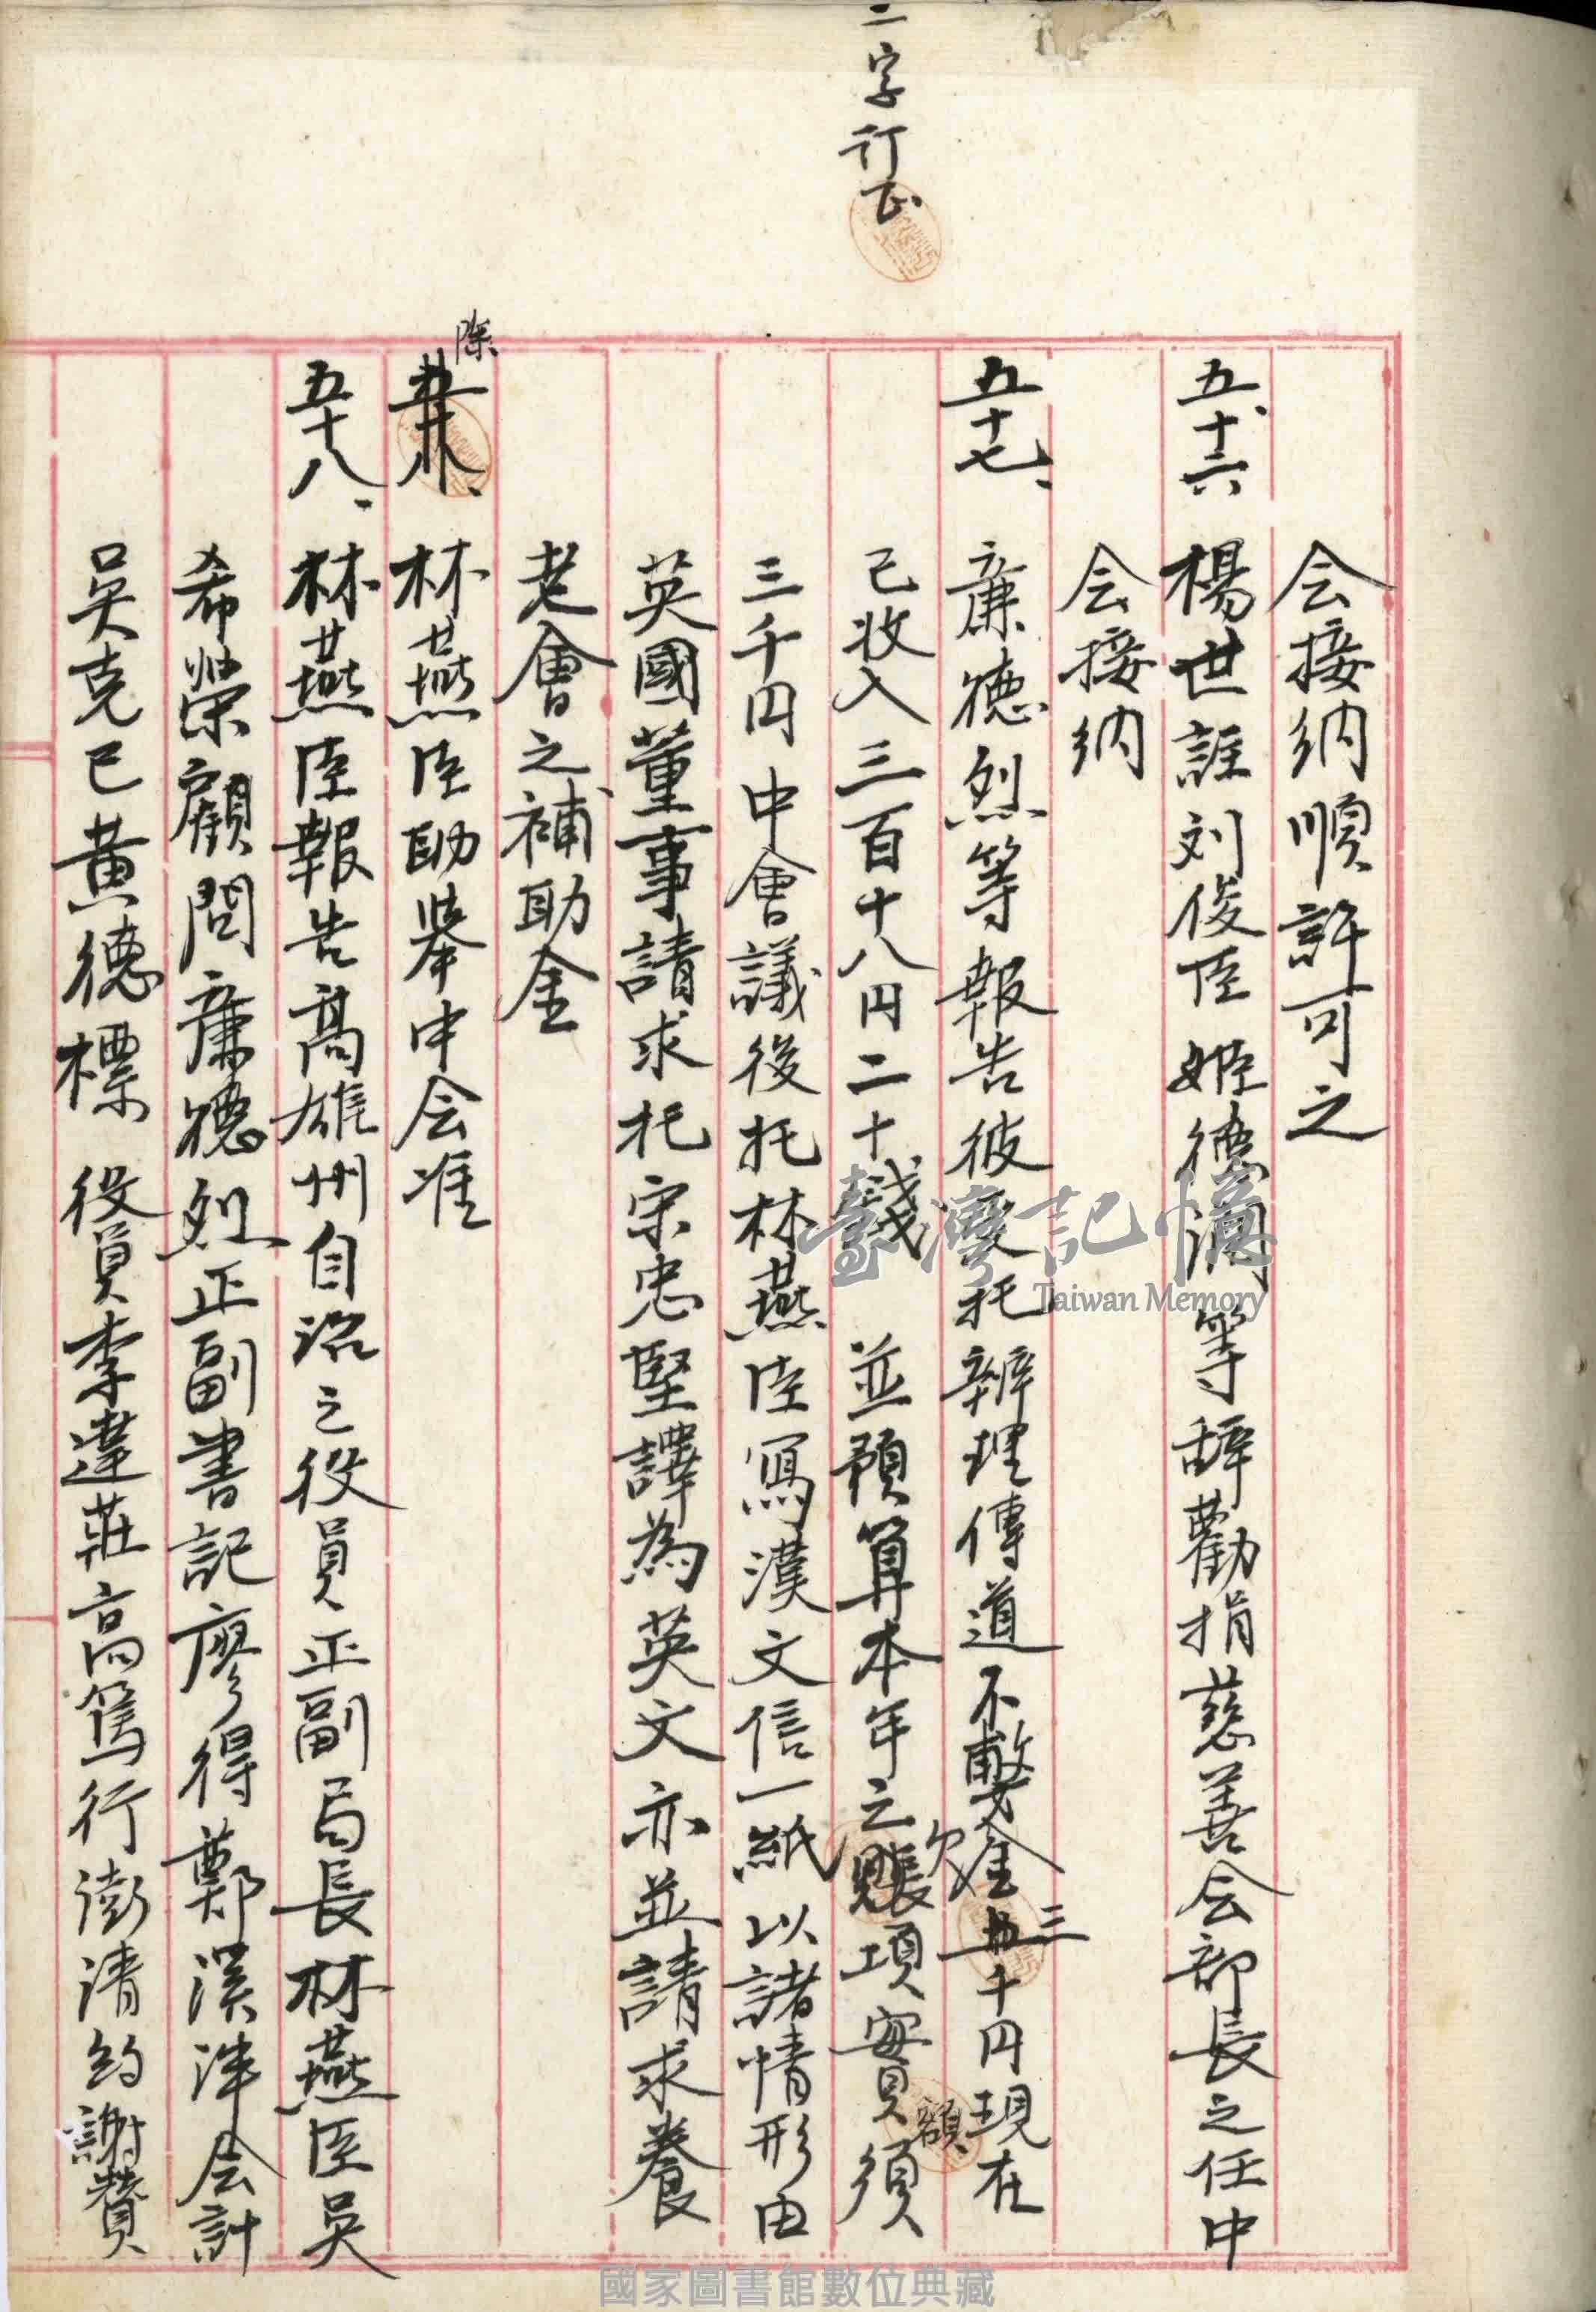 二字訂正
会接納順許可之
五十六、楊世註刘俊臣姬德淵等辞勸捐慈善会部長之任中
会接納
五十七、廉德烈等報告彼受托辦理傳道不敷金三千円現在
已收入三百十八円二十戔 並預算本年之欠項實額須
三千円中會議後托林燕臣寫漢文信一紙以諸情形由
英國董事請求托宋忠堅譯為英文亦並請求養
老會之補助金
除
林燕臣助舉中会准
五十八、林燕臣報告高雄州自治之役員正副局長林燕臣吳
希榮顧問廉德烈正副書記廖得鄭溪泮会計
吳克己黃德標 役員李達莊高篤行澎清約謝贊
臺灣記憶
Taiwan Memory
國家圖書館數位典藏